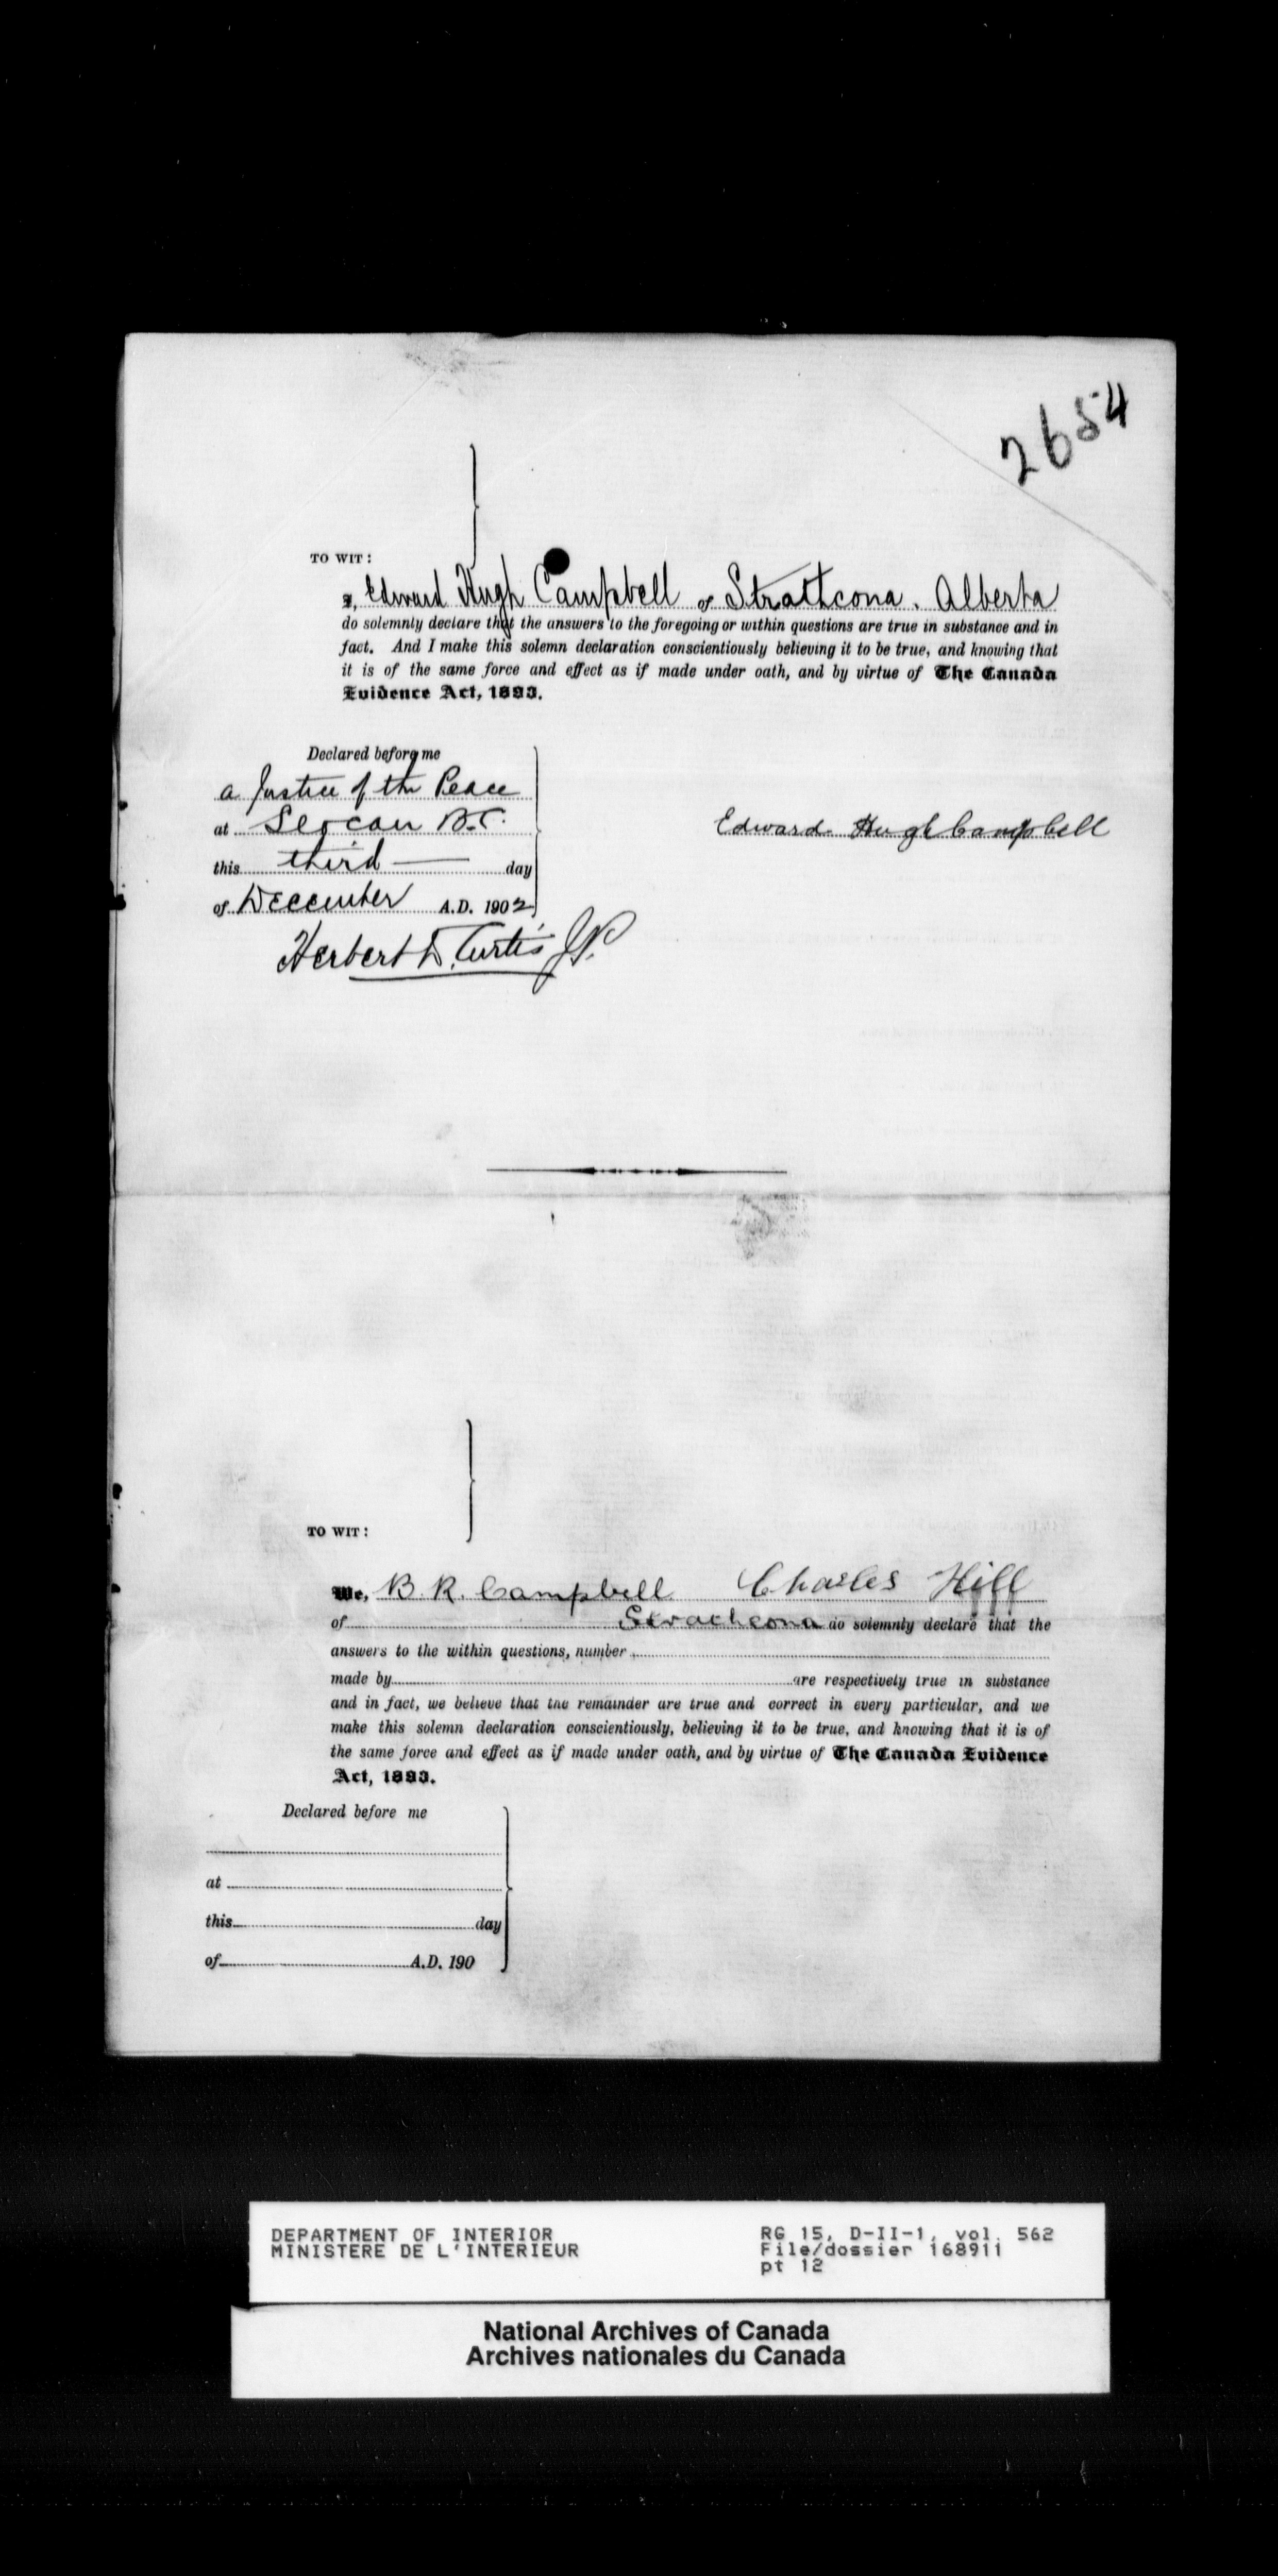 2654
TO WIT:
I, Edward Hugh Campbell of Strathcona. Alberta
do solemnly declare that the answers to the foregoing or within questions are true in substance and in
fact. And I make this solemn declaration conscientiously believing it to be true, and knowing that
it is of the same force and effect as if made under oath, and by virtue of The Canada
Evidence Act, 1893.
Declared before me
a Justice of the Peace
at Slocan B.C.
Edward Hugh Campbell
this third day
of December A.D. 1902
Herbert D. Curtis J.P.
TO WIT:
We, B. R. Campbell Charles Hill
of Strathcona do solemnly declare that the
answers to the within questions, number
made by are respectively true in substance
and in fact, we believe that the remainder are true and correct in every particular, and we
make this solemn declaration conscientiously, believing it to be true, and knowing that it is of
the same force and effect as if made under oath, and by virtue of The Canada Evidence
Act, 1893.
Declared before me
at
this day
of A.D. 190
DEPARTMENT OF INTERIOR
MINISTERE DE L'INTERIEUR
RG 15, D-II-1, vol. 562
File/dossier 168911
pt 12
National Archives of Canada
Archives nationales du Canada